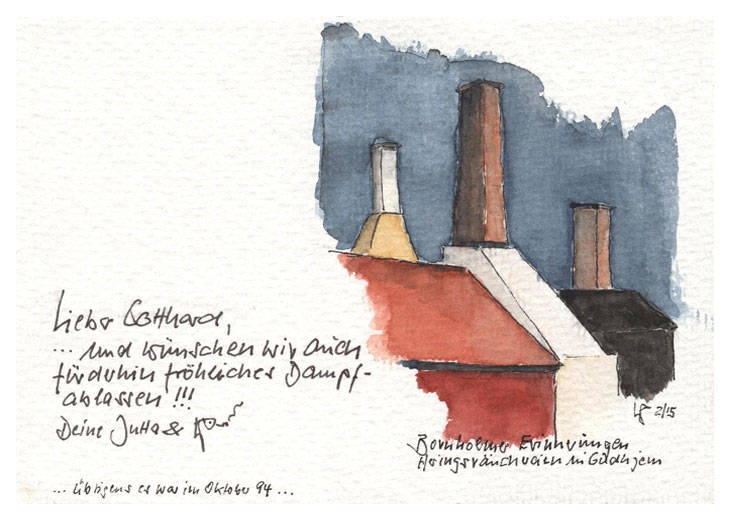 Lieber Gotthard,
... und wünschen wir Dich
fröhliches Dampf-
ablassen!!!
Deine Jutta &
2/15
Bornholmer Erinnerungen
Heringsräuchereien in Gudhjem
... übrigens es war im Oktober 94 ...